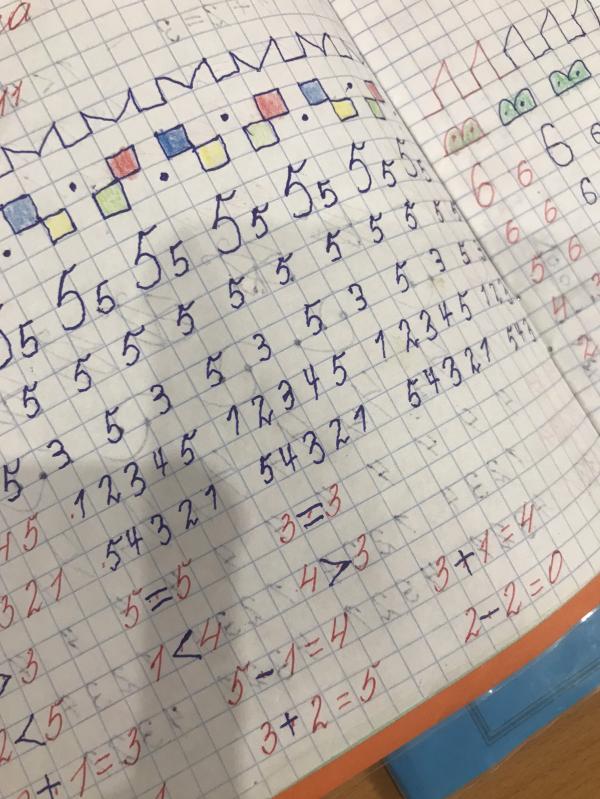 5 5 5 5 5 5 5 5 5 5 5 5 5
5 5 5 5 5 5 5 5 5 5
5 3 5 3 5 3 5 3 5 3 5
4 5 1 2 3 4 5 1 2 3 4 5 1 2 3 4 5 1 2 3
3 2 1 5 4 3 2 1 5 4 3 2 1 5 4 3 2 1 5 4 3
5=5 3=3
>3 1<4 4>3
2<5 5-1=4 3+1=4
+1=3 3+2=5 2-2=0
6 6 6
6 6 6
5 6
4
2